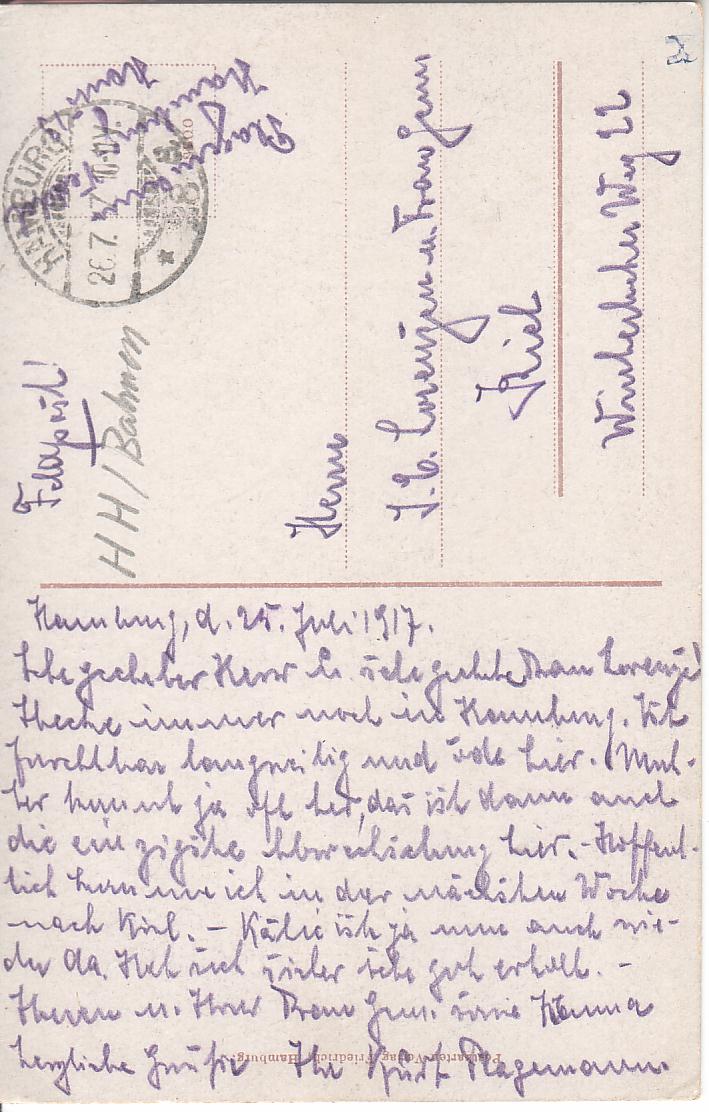 Feldpost!
HH/Bahnhof
HAMBURG
26.7.17. 10-12V.
* 8
Herrn
J. C. Lorenzen u. Frau Gem.
Kiel
Winterbeker Weg 22
Hamburg, d. 25. Juli 1917.
Sehr geehrter Herr u. sehr geehrte Frau Lorenzen
Stecke immer noch in Hamburg. Ist
furchtbar langweilig und öde hier. Mut-
ter kommt ja oft her, das ist dann auch
die einzigste Abwechslung hier. - Hoffent-
lich komme ich in der nächsten Woche
nach Kiel. - Käte ist ja nun auch wie-
der da. Hat sich sicher sehr gut erholt. -
Ihnen u. Ihrer Frau Gem. sowie Hanna
herzliche Grüße Ihr Kurt Plagemann
Postkarten-Verlag Friedrich, Hamburg.